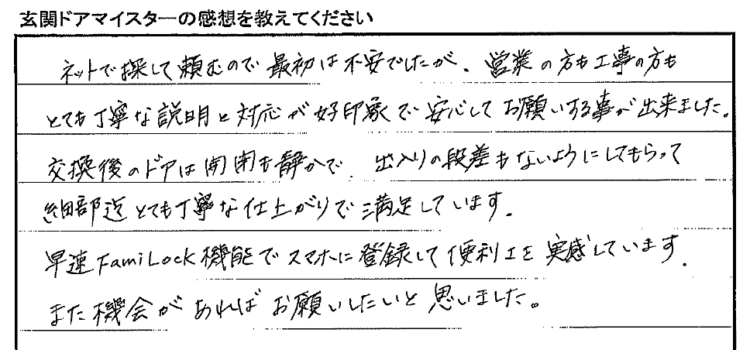 玄関ドアマイスターの感想を教えてください
ネットで探して頼むので最初は不安でしたが、営業の方も工事の方も
とても丁寧な説明と対応が好印象で安心してお願いする事が出来ました。
交換後のドアは開閉も静かで、出入りの段差もないようにしてもらって
細部迄とても丁寧な仕上がりで満足しています。
早速FamiLock機能でスマホに登録して便利さを実感しています。
また機会があればお願いしたいと思いました。